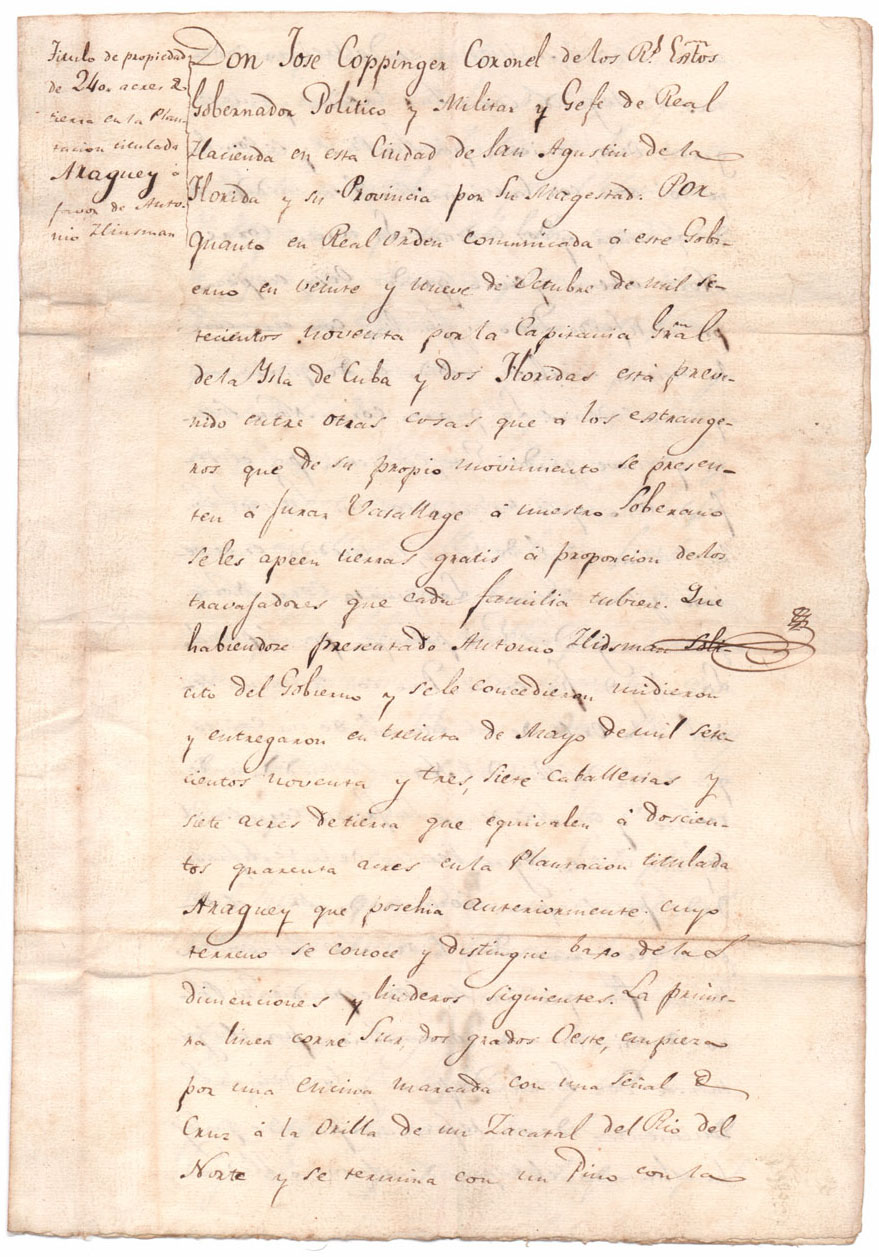 Titulo de propiedad
de 240, acres de
tierra en la Plan-
tacion titulada
Araguey á
favor de Anto-
nio Hinsman
Don Jose Coppinger Coronel de los Rs. Extos
Gobernador Politico y Militar y Gefe de Real
Hacienda en esta Ciudad de San Agustin de la
Florida y su Provincia por Su Magestad. Por
quanto en Real Orden comunicada á este Gobi-
erno en veinte y nueve de Octubre de mil se-
tecientos noventa por la Capitania Gral
de la Ysla de Cuba y dos Floridas está preve-
nido entre otras cosas que á los estrange-
ros que de su propio movimiento se presen-
ten á Jurar Vasallage á nuestro Soberano
se les apeen tierras gratis á proporcion de los
travajadores que cada familia tubiere. Que
habiendose presentado Antonio Hidsman soli-
citó del Gobierno y se le concedieron midieron
y entregaron en treinta de Mayo de mil sete-
cientos noventa y tres, siete caballerias y
siete acres de tierra que equivalen á doscien-
tos quarenta acres en la Plantacion titulada
Araguey que posehia anteriormente. cuyo
terreno se conoce y distingue baxo de la S
dimenciones y linderos siguientes. La prime-
ra linea corre Sur, dos grados Oeste, empieza
por una encina marcada con una señal de
Cruz á la Orilla de un Zacatal del Rio del
Norte y se termina con un Pino con la